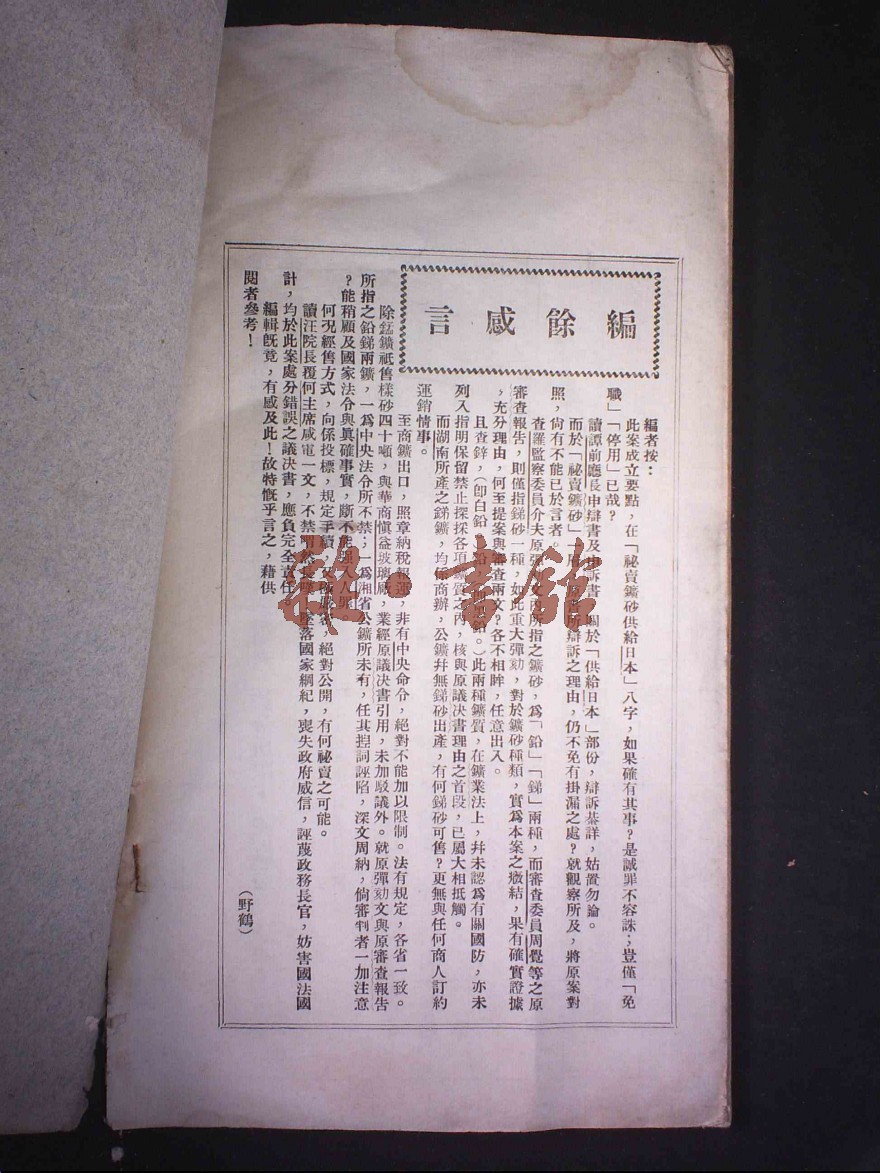 編餘感言
編者按：
此案成立要點，在「祕賣鑛砂供給日本」八字，如果確有其事？是誠罪不容誅；豈僅「免
職」「停用」已哉？
讀譚前廳長申辯書及申訴書，關於「供給日本」部份，辯訴綦詳，姑置勿論。
而於「祕賣鑛砂」一所辯訴之理由，仍不免有掛漏之處？就觀察所及，將原案對
照，尙有不能已於言者。
查羅監察委員介夫原彈劾文內所指之鑛砂，爲「鉛」「銻」兩種，而審查委員周覺等之原
審查報告，則僅指銻砂一種，如此重大彈劾，對於鑛砂種類，實爲本案之癥結，果有確實證據
，充分理由，何至提案與審查兩文？各不相眸，任意出入。
且查鋅，（卽白鉛鉛。）此兩種鑛質，在鑛業法上，幷未認爲有關國防，亦未
列入指明保留禁止探採各項鑛質之內，核與原議決書理由之首段，已屬大相抵觸。
而湖南所產之銻鑛，均係商辦，公鑛幷無銻砂出產，有何銻砂可售？更無與任何商人訂約
運銷情事。
至商鑛出口，照章納稅報運，非有中央命令，絕對不能加以限制。法有規定，各省一致。
除錳鑛祇售樣砂四十噸，與華商愼益玻璃廠，業經原議決書引用，未加駁議外。就原彈劾文與原審查報告
所指之鉛銻兩鑛，一爲中央法令所不禁；一爲湘省公鑛所未有，任其揑詞誣陷，深文周納，倘審判者一加注意
？能稍顧及國家法令與眞確事實，斷不能入人罪
何况經售方式，向係投標，規定手續，嚴密，絕對公開，有何祕賣之可能。
讀汪院長覆何主席咸電一文，不禁墜落國家綱紀，喪失政府威信，誣蔑政務長官，妨害國法國
計，均於此案處分錯誤之議決書，應負完全責任。
編輯旣竟，有感及此！故特慨乎言之，藉供
閱者參考！
（野鶴）
書館